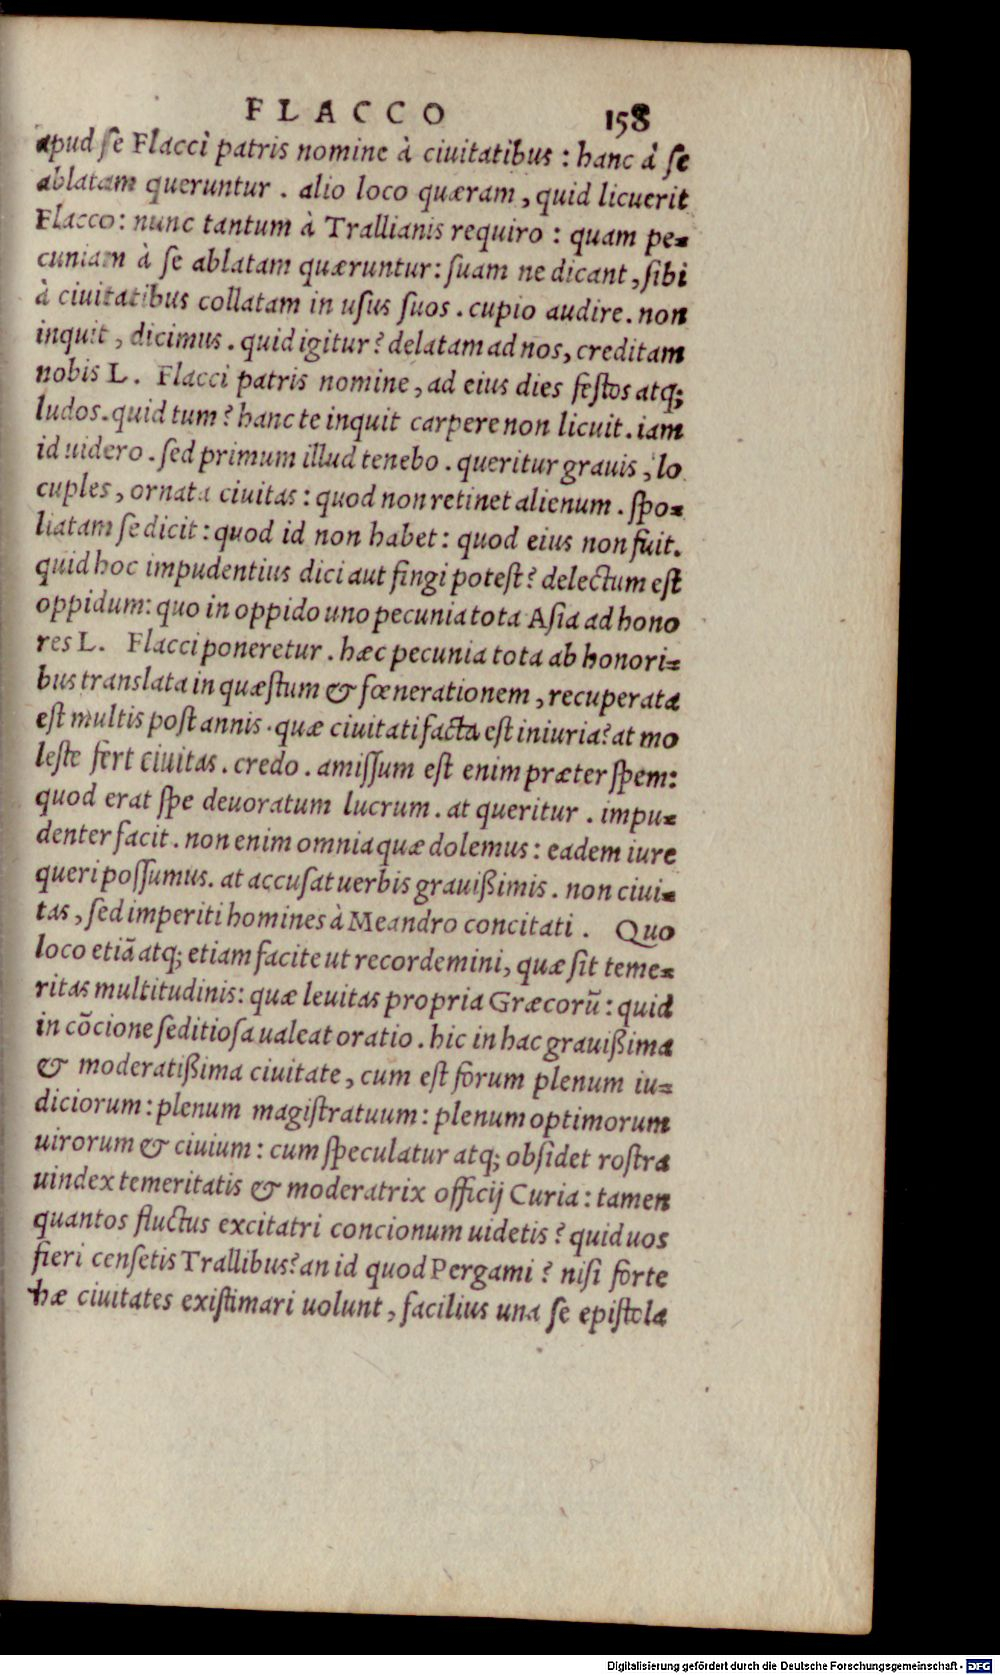 FLACCO 158
apud se Flacci patris nomine à ciuitatibus : hanc à se
ablatam queruntur . alio loco quæram , quid licuerit
Flacco : nunc tantum à Trallianis requiro : quam pe=
cuniam à se ablatam quæruntur : suam ne dicant , sibi
à ciuitatibus collatam in usus suos . cupio audire . non
inquit , dicimus . quid igitur ? delatam ad nos , creditam
nobis L. Flacci patris nomine , ad eius dies festos atq;
ludos . quid tum ? hanc te inquit carpere non licuit . iam
id uidero . sed primum illud tenebo . queritur grauis , lo
cuples , ornata ciuitas : quod non retinet alienum . spo=
liatam se dicit : quod id non habet : quod eius non fuit .
quid hoc impudentius dici aut fingi potest ? delectum est
oppidum : quo in oppido uno pecunia tota Asia ad hono
res L. Flacci poneretur . hæc pecunia tota ab honori=
bus translata in quæstum & fœnerationem , recuperata
est multis post annis . quæ ciuitati facta est iniuria ? at mo
leste fert ciuitas . credo . amissum est enim præter spem :
quod erat spe deuoratum lucrum . at queritur . impu=
denter facit . non enim omnia quæ dolemus : eadem iure
queri possumus . at accusat uerbis grauißimis . non ciui=
tas , sed imperiti homines à Meandro concitati . Quo
loco etiā atq; etiam facite ut recordemini , quæ sit teme=
ritas multitudinis : quæ leuitas propria Græcorū : quid
in cōcione seditiosa ualeat oratio . hic in hac grauißima
& moderatißima ciuitate , cum est forum plenum iu=
diciorum : plenum magistratuum : plenum optimorum
uirorum & ciuium : cum speculatur atq; obsidet rostra
uindex temeritatis & moderatrix officij Curia : tamen
quantos fluctus excitatri concionum uidetis ? quid uos
fieri censetis Trallibus ? an id quod Pergami ? nisi forte
hæ ciuitates existimari uolunt , facilius una se epistola
Digitalisierung gefördert durch die Deutsche Forschungsgemeinschaft - DFG